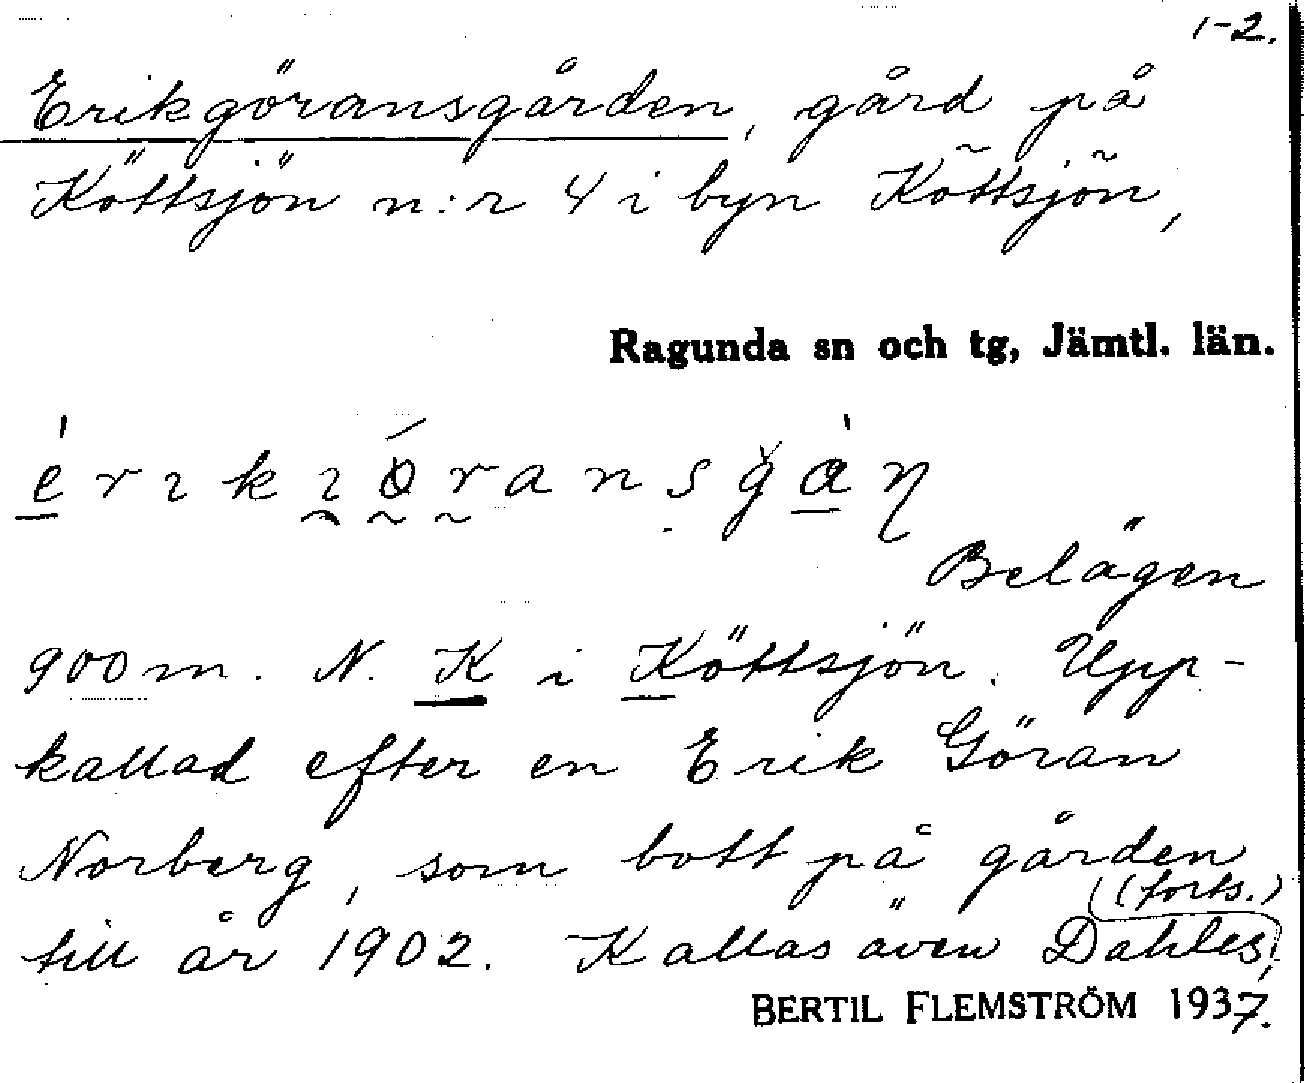 1-2.
Erikgöransgården, gård på
Köttsjön n:r 4 i byn Köttsjön,
Ragunda sn och tg, Jämtl. län.
Belägen
900 m. N. K i Köttsjön. Upp-
kallad efter en Erik Göran
Norberg, som bott på gården
till år 1902. Kallas även Dahles,
(forts.)
BERTIL FLEMSTRÖM 1937.